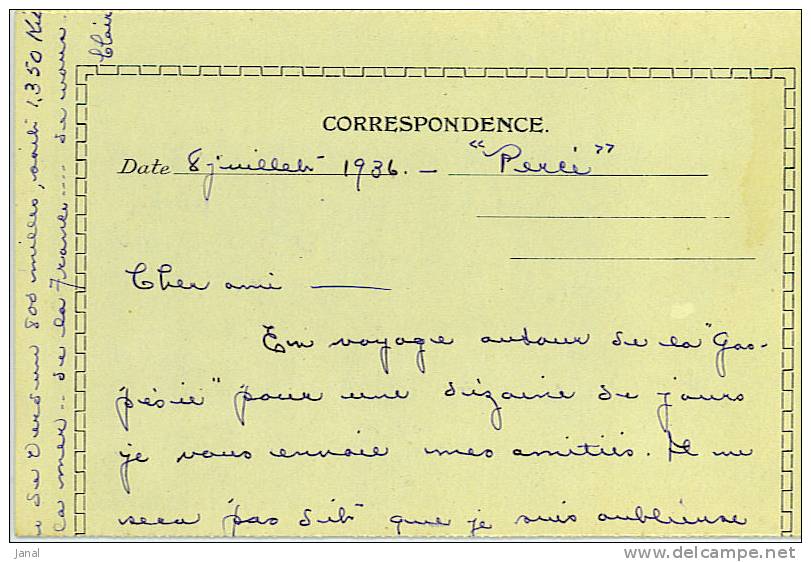 CORRESPONDENCE.
Date 8 juillet 1936. — "Percé"
Cher ami —
En voyage autour de la "Gas-
pésie" pour une dizaine de jours
je vous envoie mes amitiés. Il ne
sera pas dit que je suis oublieuse
de Verdun 800 milles, soit 1,350
la mer.. de la France.... de vous.
Clair
Janal
www.delcampe.net